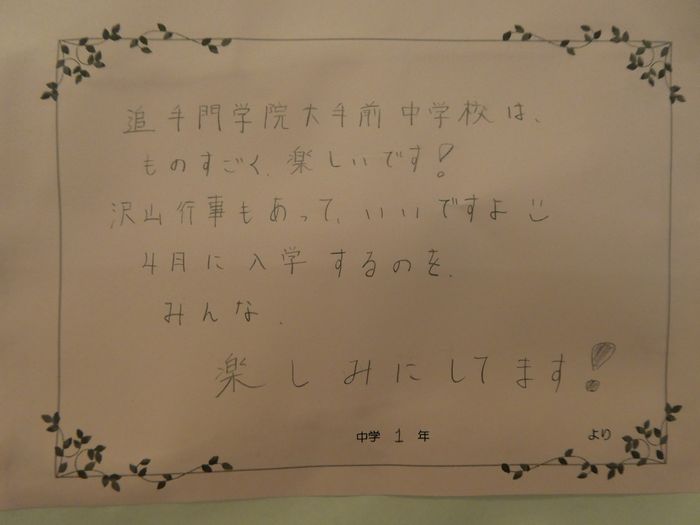 追手門学院大手前中学校は、
ものすごく、楽しいです!
沢山行事もあって、いいですよ
4月に入学するのを、
みんな、
楽しみにしてます!
中学 1 年 より